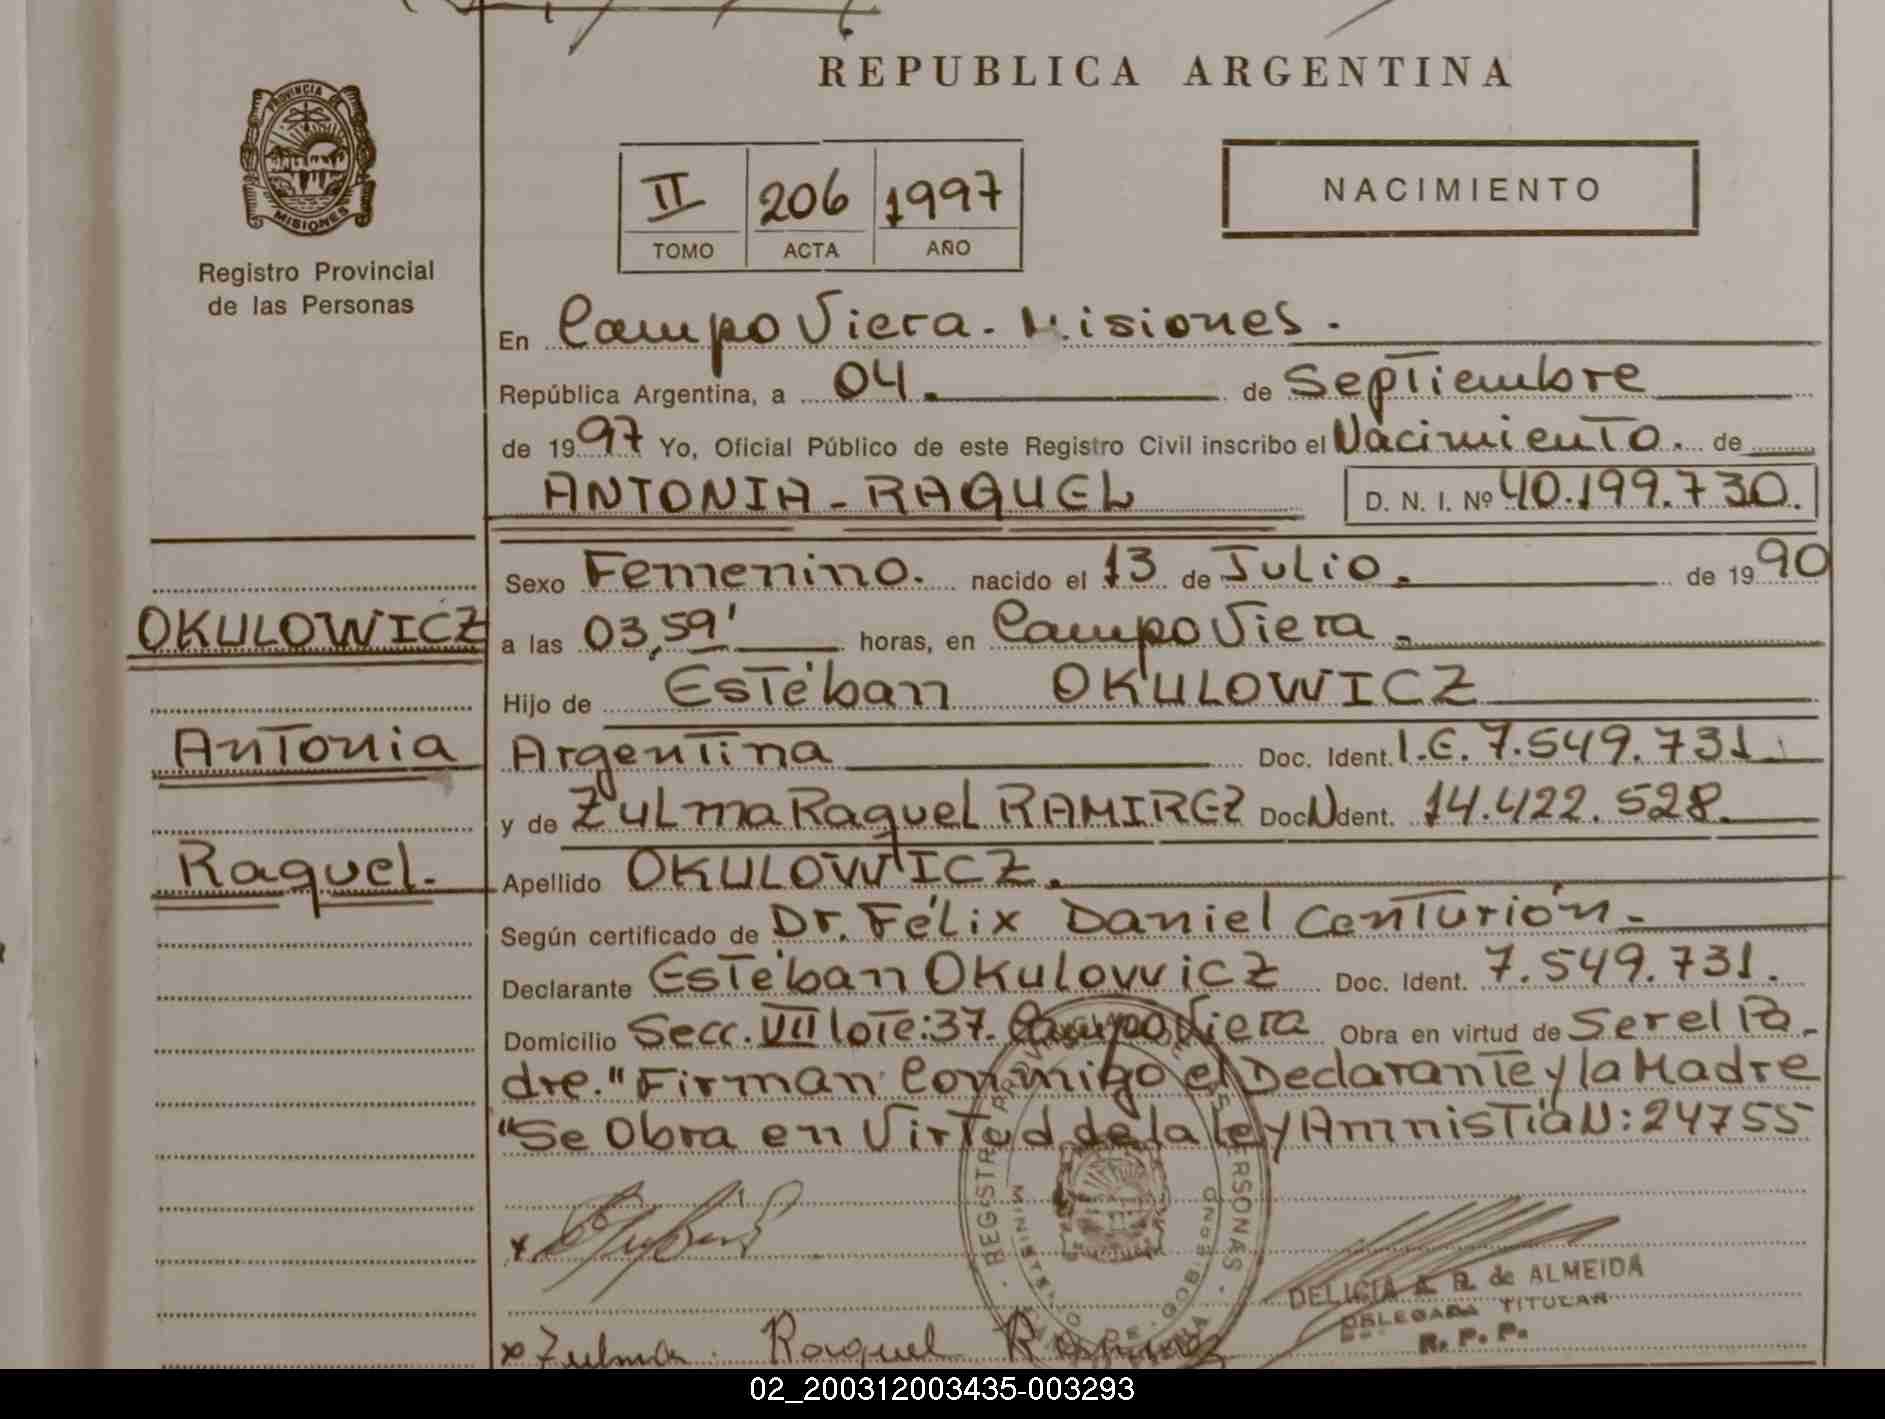 REPUBLICA ARGENTINA
PROVINCIA DE
MISIONES
Registro Provincial
de las Personas
II 206 1997
TOMO ACTA AÑO
NACIMIENTO
En Campo Viera. Misiones.
República Argentina, a 04. de Septiembre
de 1997 Yo, Oficial Público de este Registro Civil inscribo el Nacimiento. de
ANTONIA - RAQUEL D. N. I. Nº 40.199.730.
Sexo Femenino. nacido el 13 de Julio. de 1990
OKULOWICZ
a las 03,59' horas, en Campo Viera.
Hijo de Estéban OKULOWICZ
Antonia
Argentina Doc. Ident. L.E. 7.549.731
y de Zulma Raquel RAMIREZ Doc N dent. 14.422.528.
Raquel.
Apellido OKULOWICZ.
Según certificado de Dr. Félix Daniel Centurión.
Declarante Estéban Okulowicz Doc. Ident. 7.549.731.
Domicilio Secc. VII lote: 37. Campo Viera Obra en virtud de Ser el Pa-
dre. "Firman Conmigo el Declarante y la Madre
"Se Obra en Virtud de la ley Amnistía N: 24755
DELICIA A. R. de ALMEIDA
DELEGADA TITULAR
R. P. P.
x Zulma. Raquel
02_200312003435-003293